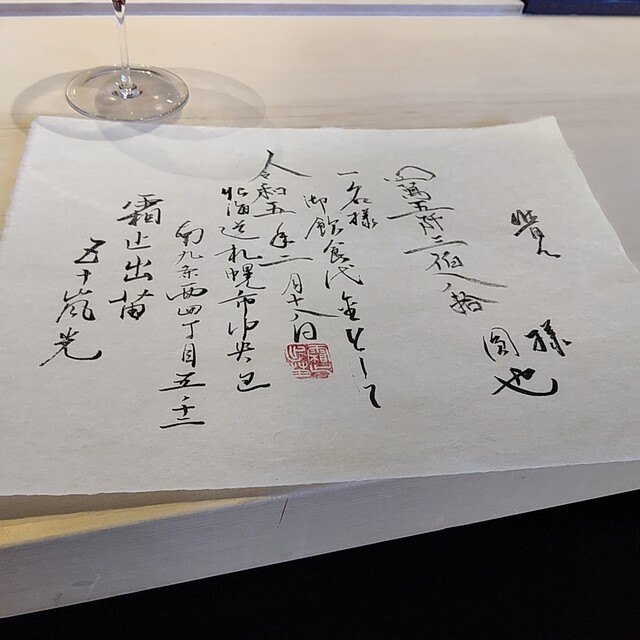 様
四萬五阡三佰八拾圓也
一名様
御飲食代金として
令和五年二月十八日
北海道札幌市中央区
南九条西四丁目五ー十二
霜止出苗
五十嵐光